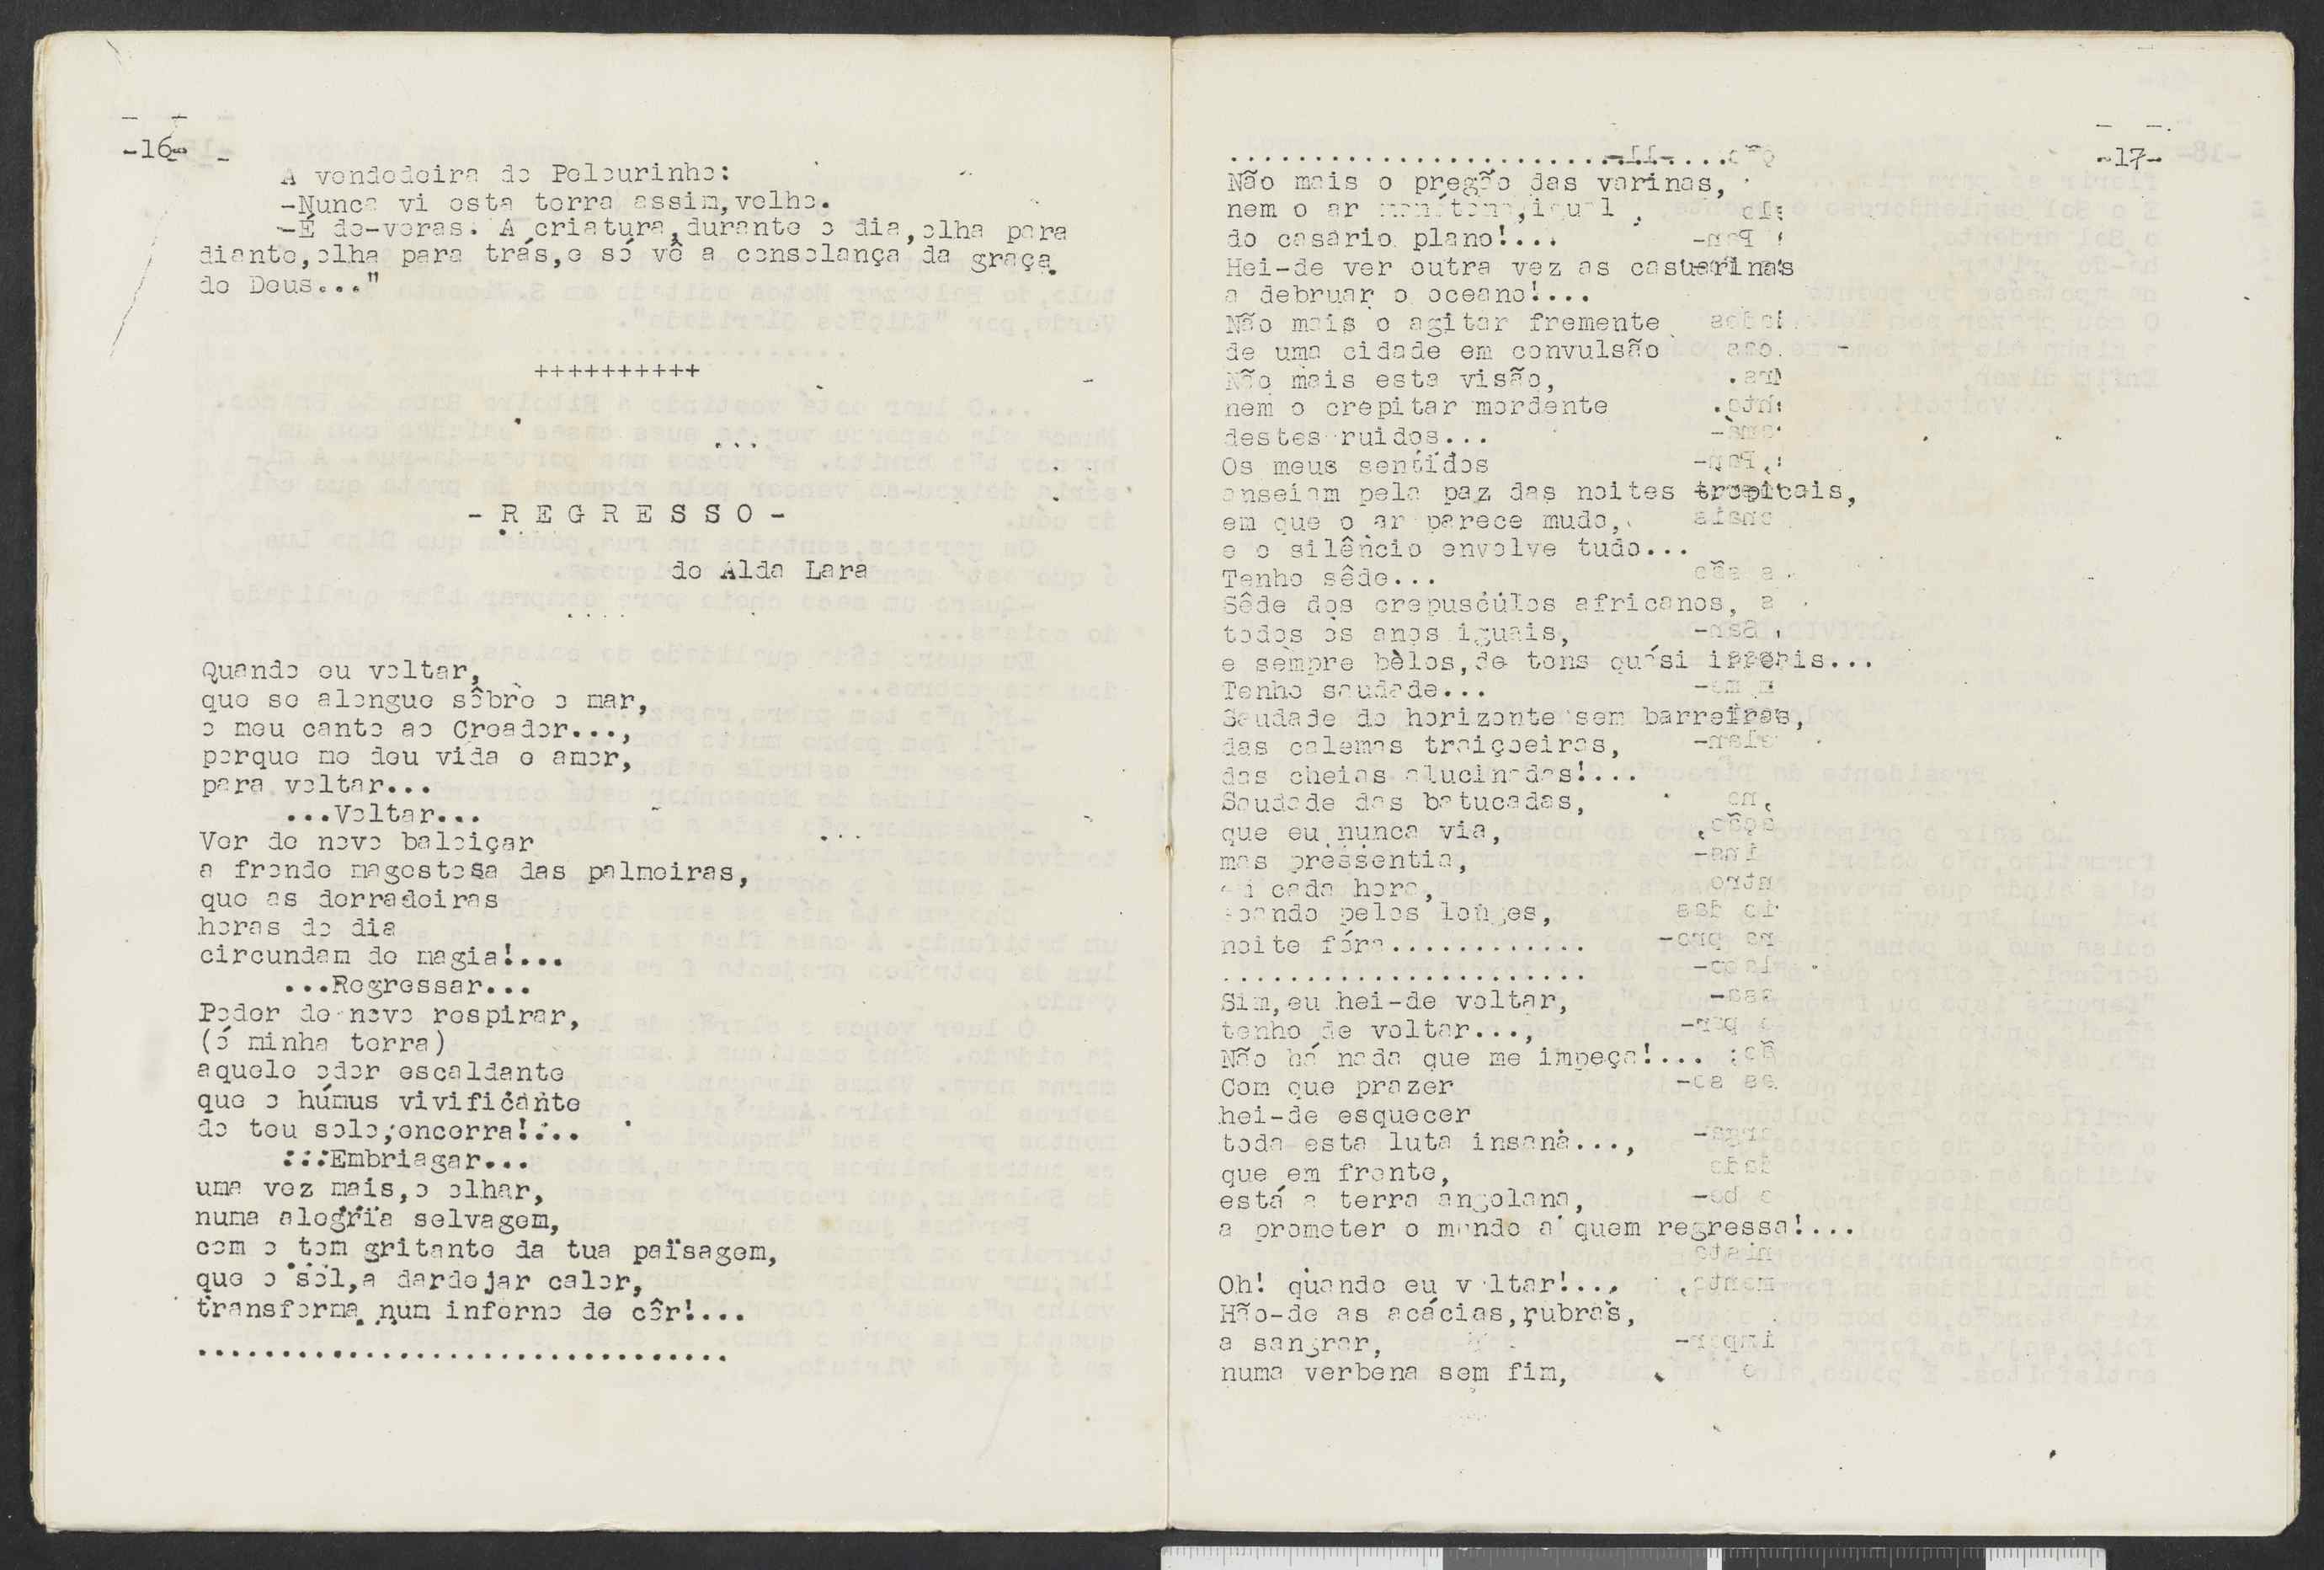 -16-
A vendedeira do Pelourinho:
-Nunca vi esta terra assim,velho.
-É de-veras. A criatura,durante o dia,olha para
diante,olha para trás,e só vê a consolança da graça
de Deus..."
++++++++++
-REGRESSO-
de Alda Lara
Quando eu voltar,
que se alongue sôbre o mar,
o meu canto ao Creador...,
porque me deu vida e amor,
para voltar...
...Voltar...
Ver de novo baloiçar
a fronde magestosa das palmeiras,
que as derradeiras
horas do dia
circundam de magia!...
...Regressar...
Poder de novo respirar,
(ó minha terra)
aquele odor escaldante
que o húmus vivificante
do teu solo,encerra!...
:::Embriagar...
uma vez mais,o olhar,
numa alegria selvagem,
com o tom gritante da tua païsagem,
que o sol,a dardejar calor,
transforma num inferno de côr!....
................................
-17-
..............................
Não mais o pregão das varinas,
nem o ar monótono,igual
do casario plano!...
Hei-de ver outra vez as casuarinas
a debruar o oceano!...
Não mais o agitar fremente
de uma cidade em convulsão
Não mais esta visão,
nem o crepitar mordente
destes ruidos...
Os meus sentidos
anseiam pela paz das noites tropicais,
em que o ar parece mudo,
e o silêncio envolve tudo...
Tenho sêde...
Sêde dos crepusculos africanos,
todos os anos iguais,
e sempre bèlos,de tons quási irreais...
Tenho saudade...
Saudade do horizonte sem barreiras,
das calemas traiçoeiras,
das cheias alucinadas!...
Saudade das batucadas,
que eu nunca via,
mas pressentia,
em cada hora,
soando pelos longes,
noite fóra............
......................
Sim,eu hei-de voltar,
tenho de voltar...,
Não há nada que me impeça!...
Com que prazer
hei-de esquecer
toda esta luta insana...,
que em frente,
está a terra angolana,
a prometer o mundo a quem regressa!...
Oh! quando eu voltar!...
Hão-de as acácias,rubras,
a sangrar,
numa verbena sem fim,